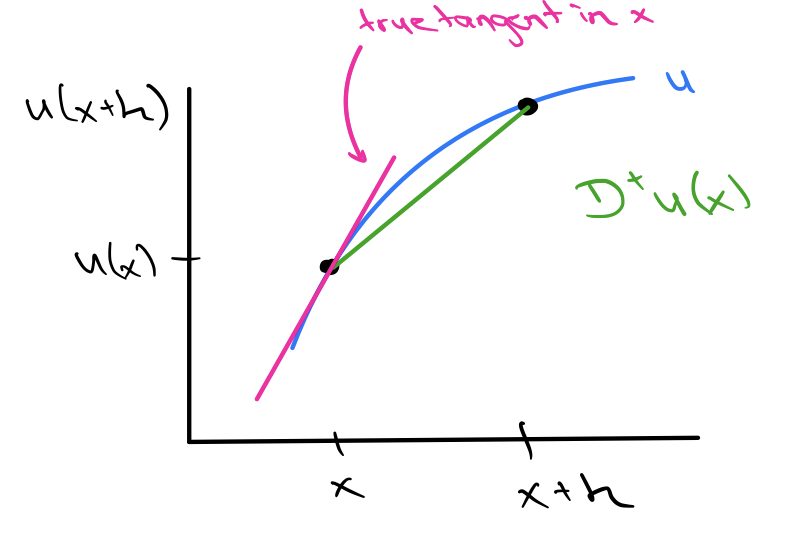 true tangent in x
u(x+h)
u
D⁺u(x)
u(x)
x
x+h